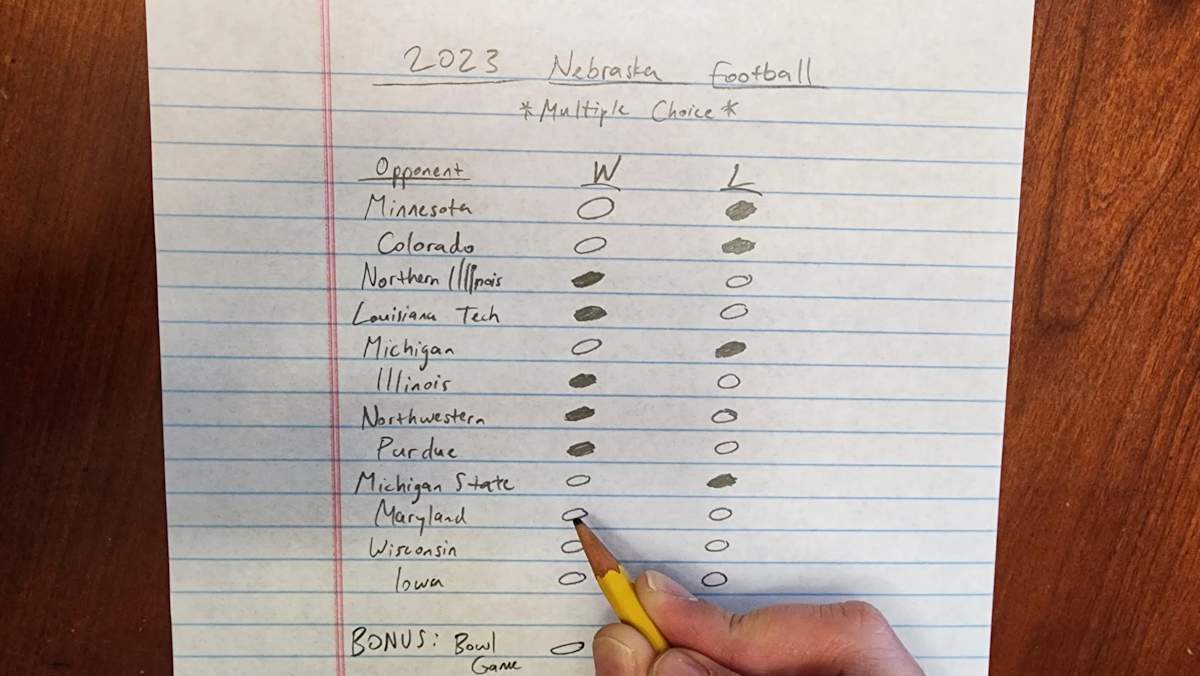 2023 Nebraska Football
*Multiple Choice*
Opponent W L
Minnesota
Colorado
Northern Illinois
Louisiana Tech
Michigan
Illinois
Northwestern
Purdue
Michigan State
Maryland
Wisconsin
Iowa
BONUS: Bowl
Game